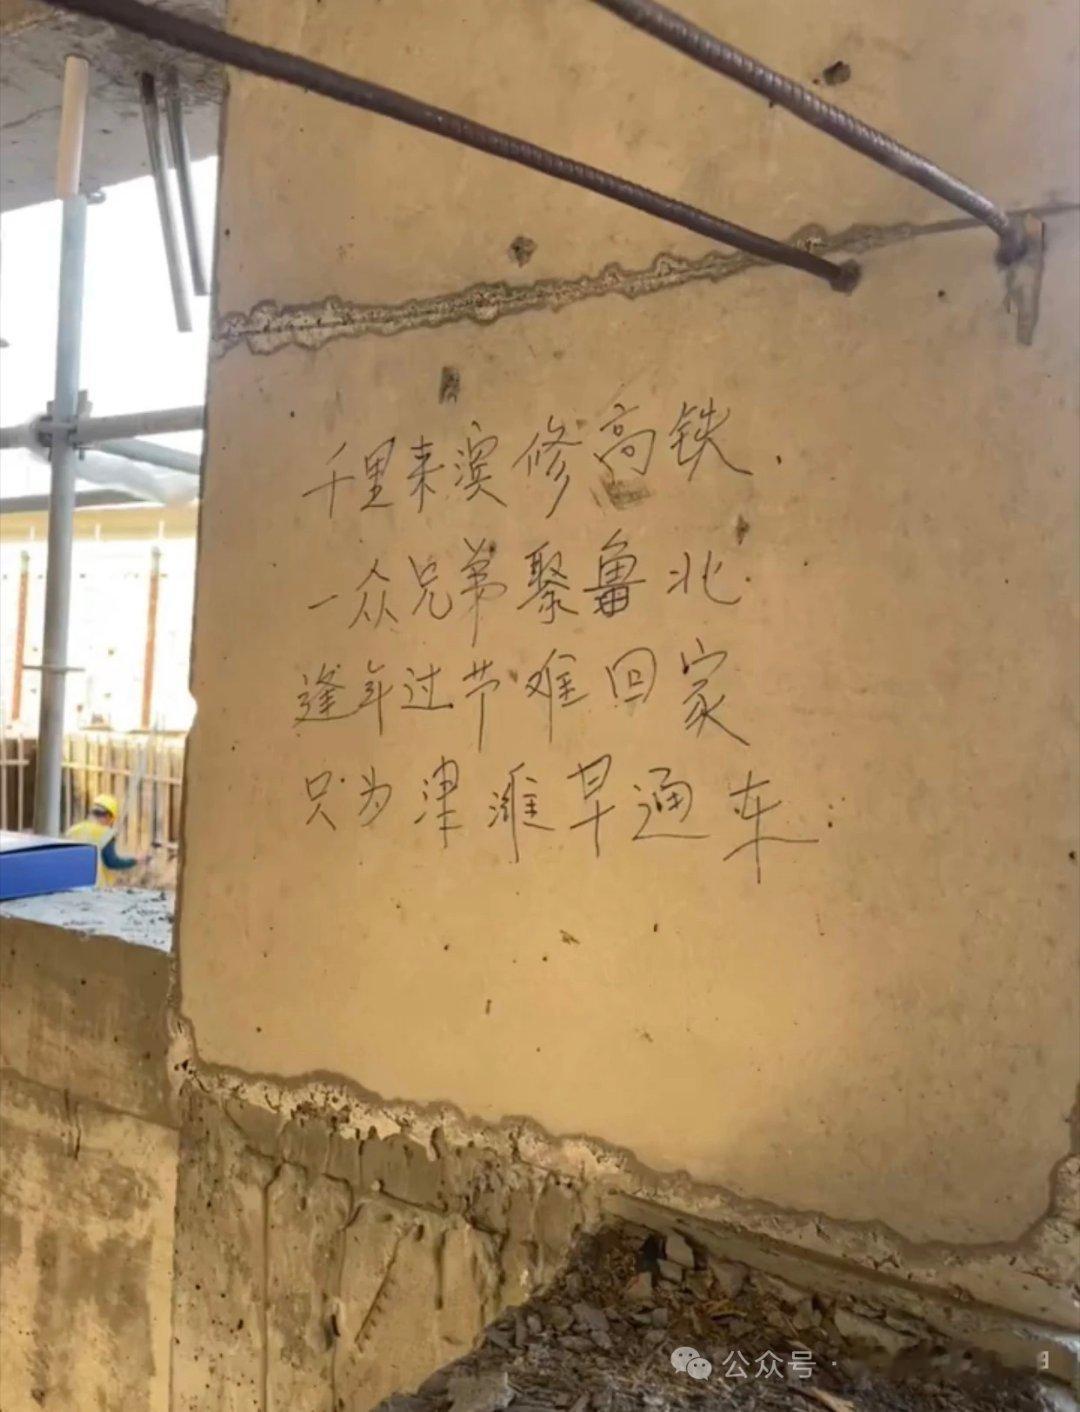 千里来滨修高铁.
一众兄弟聚鲁北.
逢年过节难回家
只为津潍早通车:
公众号·